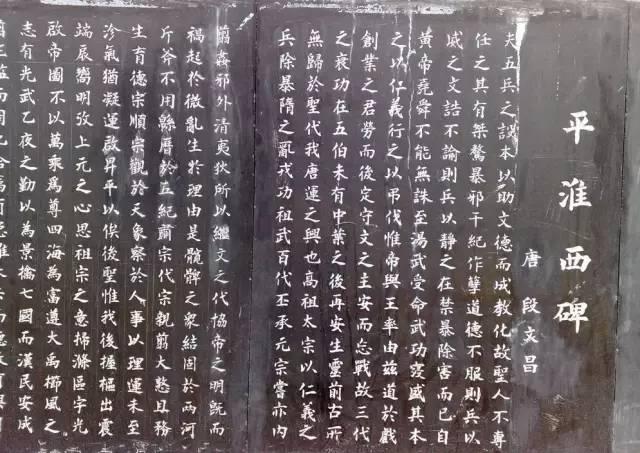 平淮西碑
唐 段文昌
夫五兵之設本以助文德而成教化故聖人不專
任之其有桀驁暴邪干紀作孽道德不服則兵以
威之文誥不諭則兵以靜之在禁暴除害而已自
黃帝堯舜不能無誅至湯武受命武功寖盛其本
之以仁義行之以弔伐惟帝與王率由茲道於戲
創業之君勞而後定守文之主安而忘戰故三代
之衰功在五伯未有中葉之後再安生靈前古所
無歸於聖代我唐運之興也高祖太宗以仁義之
兵除暴隋之亂戎功祖武百代丕承元宗嘗亦內
翦姦邪外清夷狄所以繼文之代協帝之明既而
禍起於微亂生於理由是髖髀之衆結固於兩河
斤斧不用縣曆於五紀肅宗代宗親翦大憝且務
生育德宗順宗觀於天象察於人事以理運未至
沴氣猶凝運啟昇平以俟後聖惟我后握樞出震
端扆嚮明攷上元之心思祖宗之意掃滌區宇光
啟帝圖不以萬乘為尊四海為富遵大禹櫛風之
志有光武乙夜之勤以為景擒七國而漢民安成